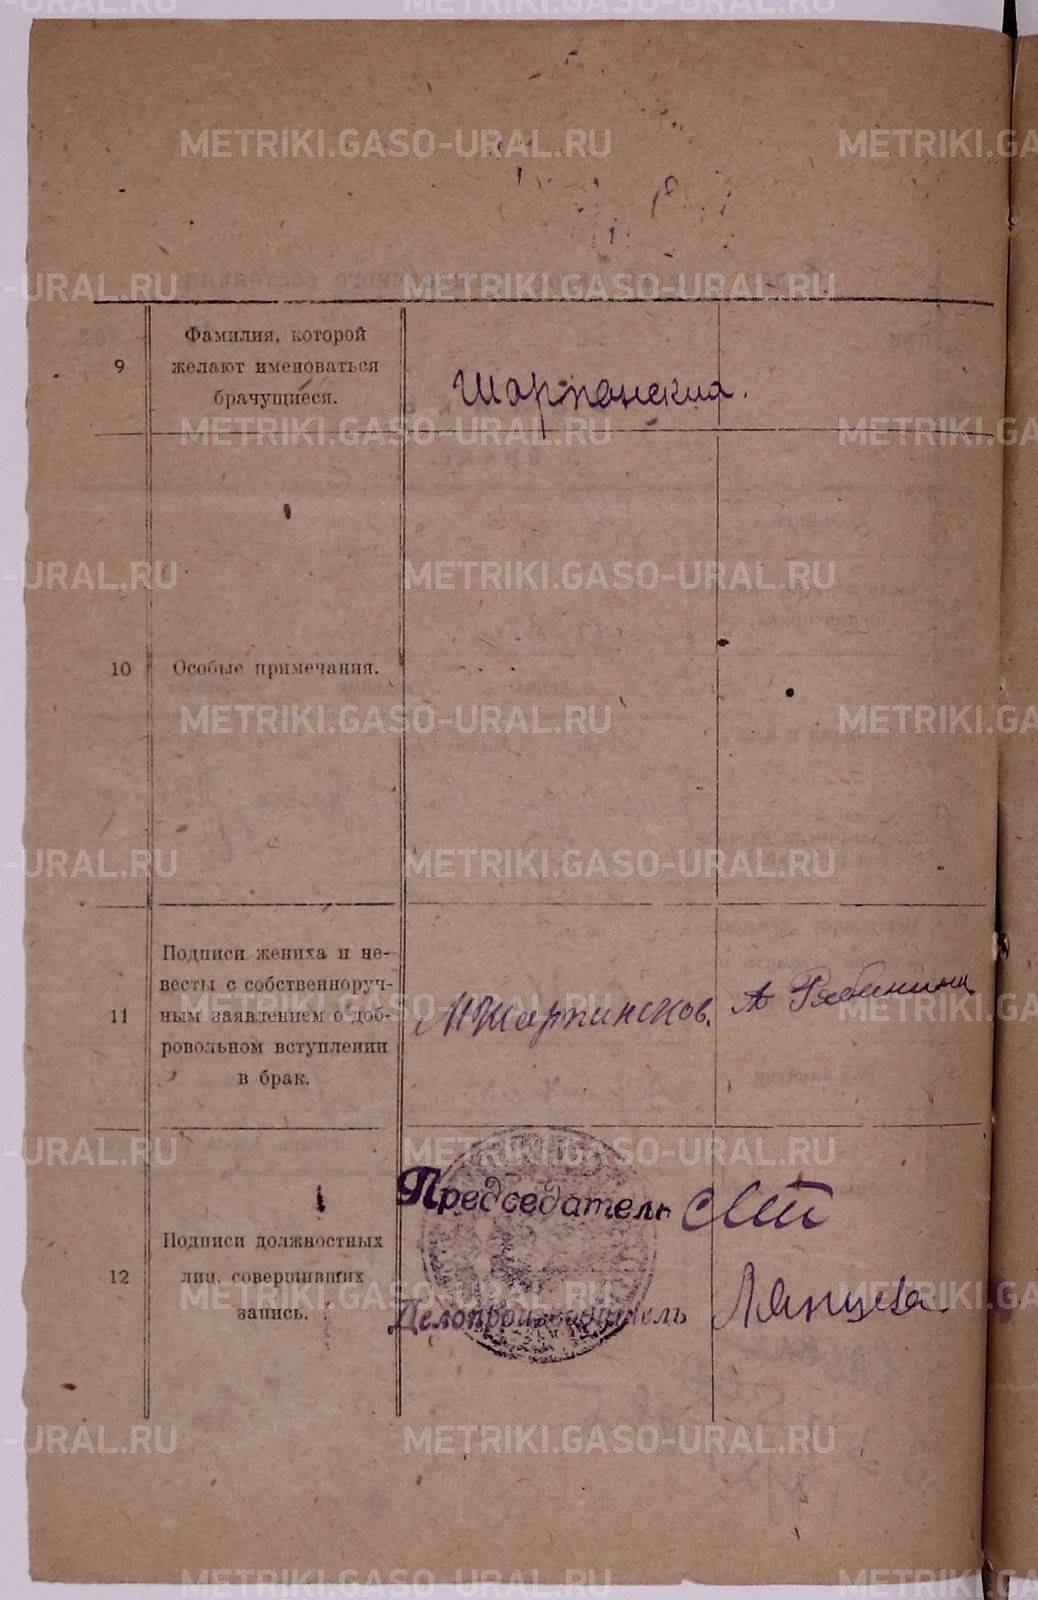 9
Фамилия, которой
желают именоваться
брачущиеся.
Шарпанския.
10
Особые примечания.
11
Подписи жениха и не-
весты с собственноруч-
ным заявлением о доб-
ровольном вступлении
в брак.
МШарпинсков.
А Рябинина
12
Подписи должностных
лиц, совершивших
запись.
Председатель
Делопроизводитель
METRIKI.GASO-URAL.RU